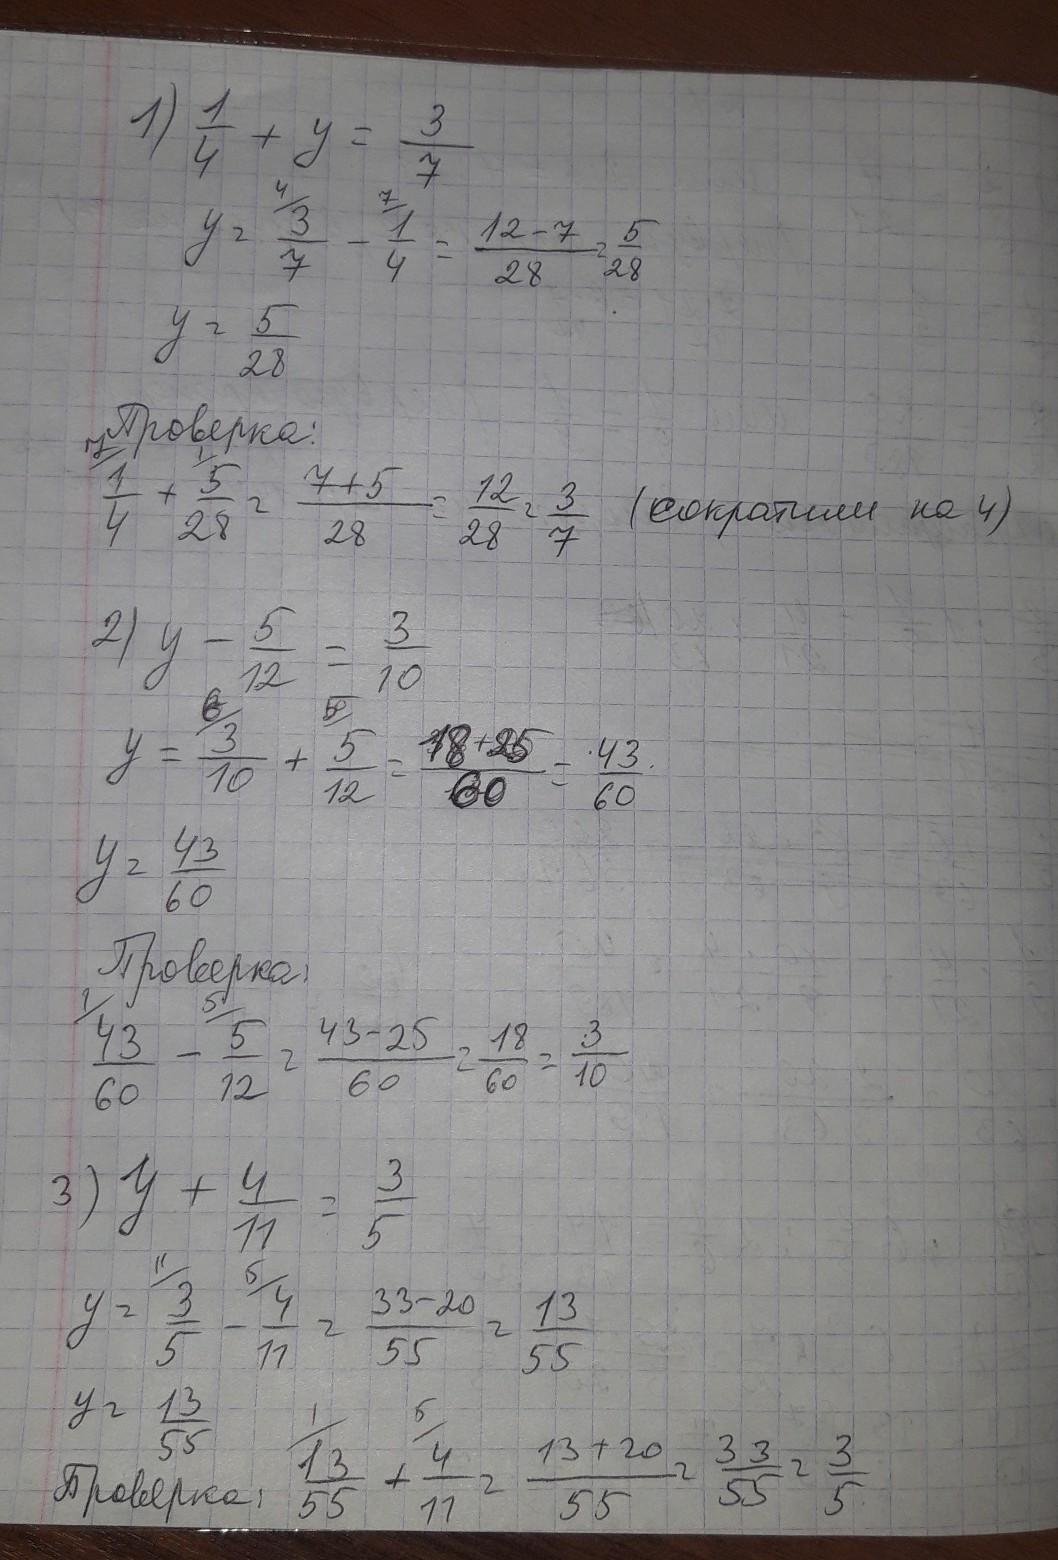 1) 1/4 + y = 3/7
y = 4/ 3/7 - 7/ 1/4 = (12-7)/28 = 5/28
y = 5/28
Проверка:
7/ 1/4 + 1/ 5/28 = (7+5)/28 = 12/28 = 3/7 (сократили на 4)
2) y - 5/12 = 3/10
y = 6/ 3/10 + 5/ 5/12 = (18+25)/60 = 43/60
y = 43/60
Проверка:
1/ 43/60 - 5/ 5/12 = (43-25)/60 = 18/60 = 3/10
3) y + 4/11 = 3/5
y = 11/ 3/5 - 5/ 4/11 = (33-20)/55 = 13/55
y = 13/55
Проверка: 1/ 13/55 + 5/ 4/11 = (13+20)/55 = 33/55 = 3/5